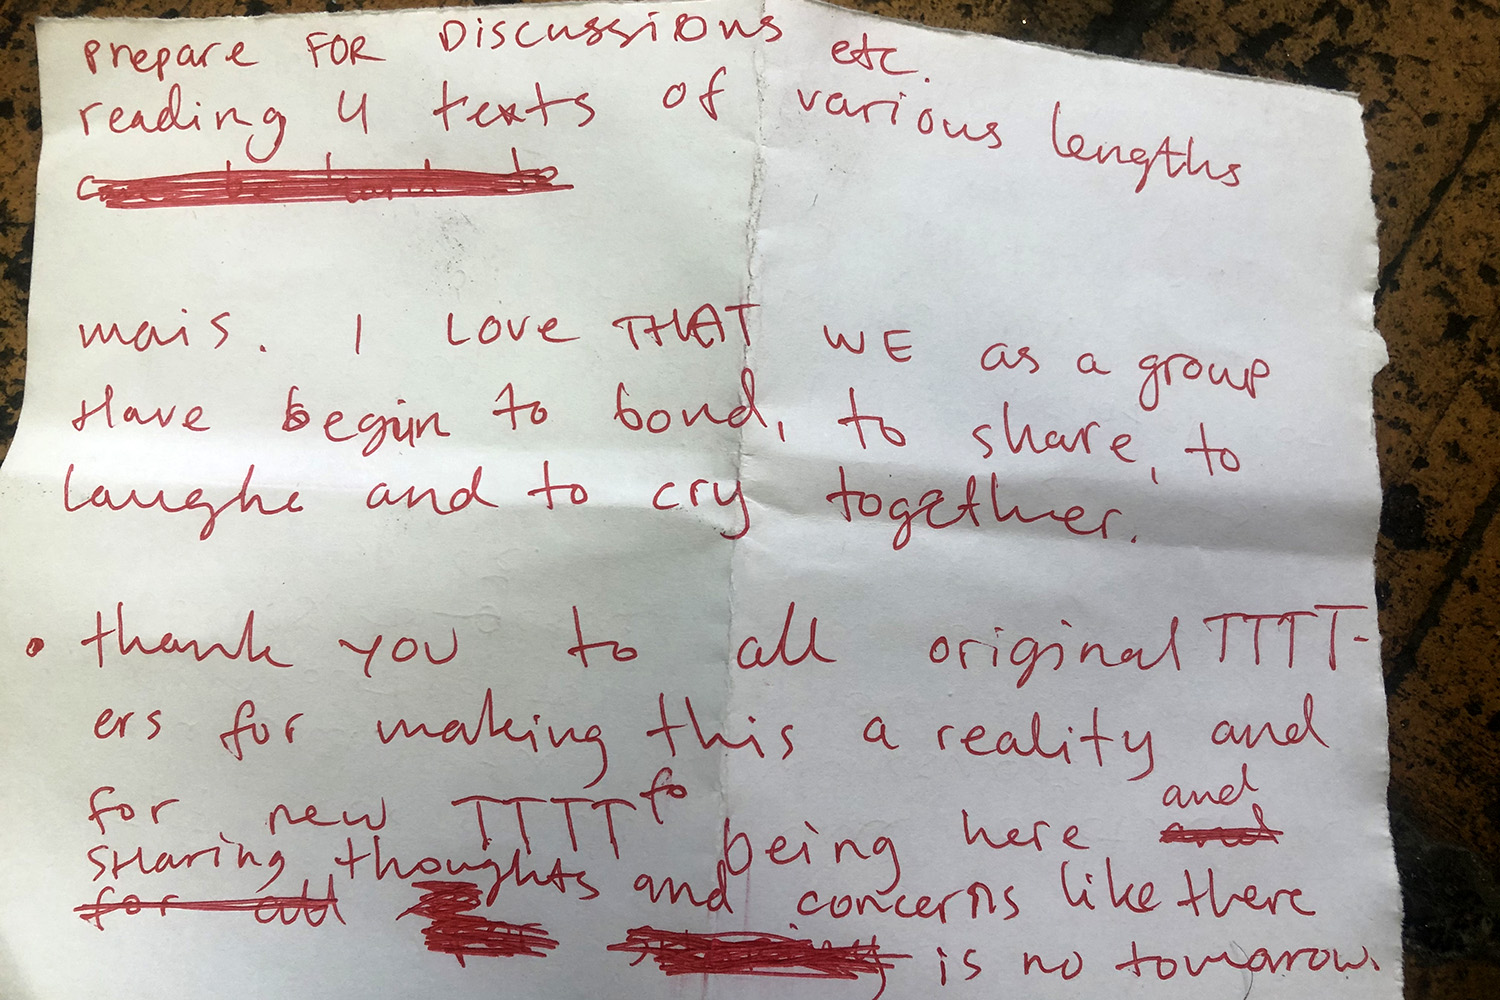 prepare FOR DiscussiOns etc.
reading 4 texts of various lengths
mais. I Love THAT WE as a group
Have begun to bond, to share, to
laughe and to cry together.
• thank you to all original TTTT-
ers for making this a reality and
for new TTTT fo being here and
SHaring thoughts and concerns like there
for all is no tomorrow.